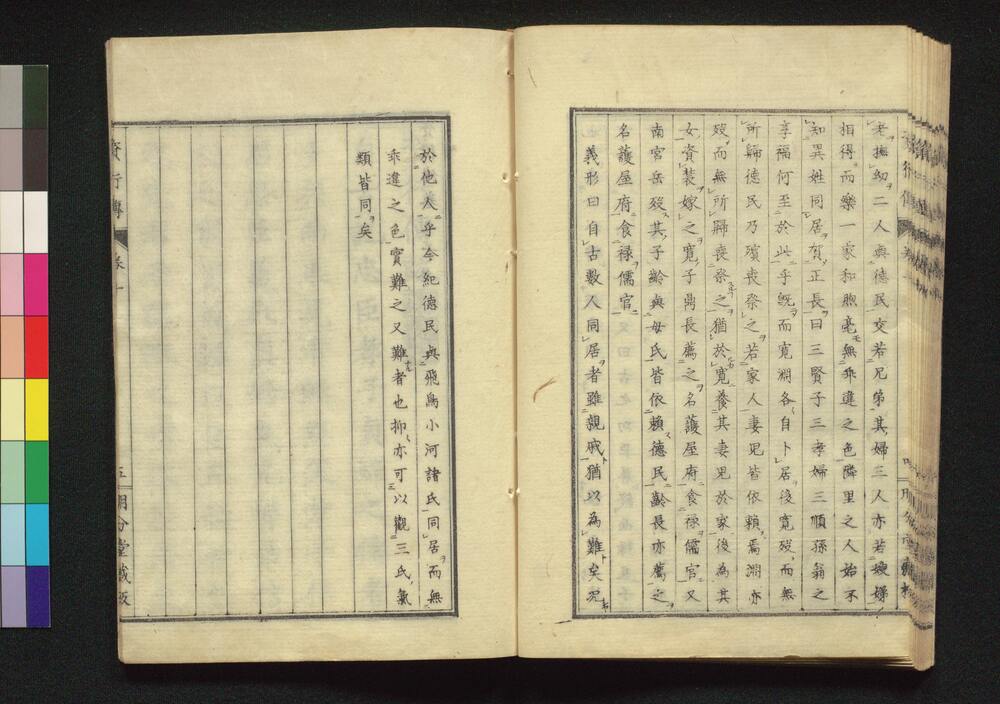 老撫幼二人與德民交若兄弟其婦三人亦若嫂娣
相得而樂一家和煦毫無乖違之色隣里之人始不
知異姓同居賀正長曰三賢子三孝婦三順孫翁之
享福何至於此乎既而寬淵各自卜居後寬歿而無
所歸德民乃殯喪祭之若家人妻兒皆依賴焉淵亦
歿而無所歸喪祭之猶於寬養其妻兒於家後為其
女資裝嫁之寬子鼎長薦之名護屋府食祿儒官又
南宮岳歿其子齡與母氏皆依賴德民齡長亦薦之
名護屋府食祿儒官
義形曰自古數人同居者雖親戚猶以為難矣況
於他人乎今紀德民與飛鳥小河諸氏同居而無
乖違之色實難之又難者也抑亦可以觀三氏氣
類皆同矣
行傳
五
明分堂藏版